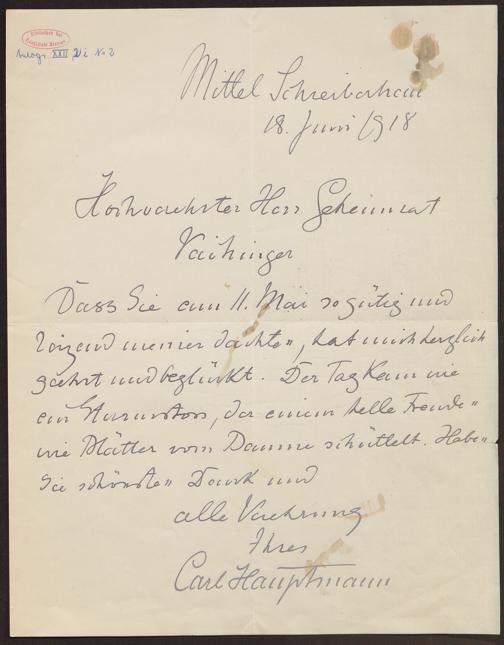 Bibliothek der
Hansestadt Bremen
Autogr. XXII, 2i No 2
Mittel Schreiberhau
18. Juni 1918
Hochverehrter Herr Geheimrat
Vaihinger
Dass Sie am 11. Mai so gütig und
reizend meiner dachten, hat mich herzlich
geehrt und beglückt. Der Tag kam wie
ein Sturmstoss, der einem helle Freuden
wie Blätter vom Baume schüttelt. Haben
Sie schönsten Dank und
alle Verehrung
Ihres
Carl Hauptmann